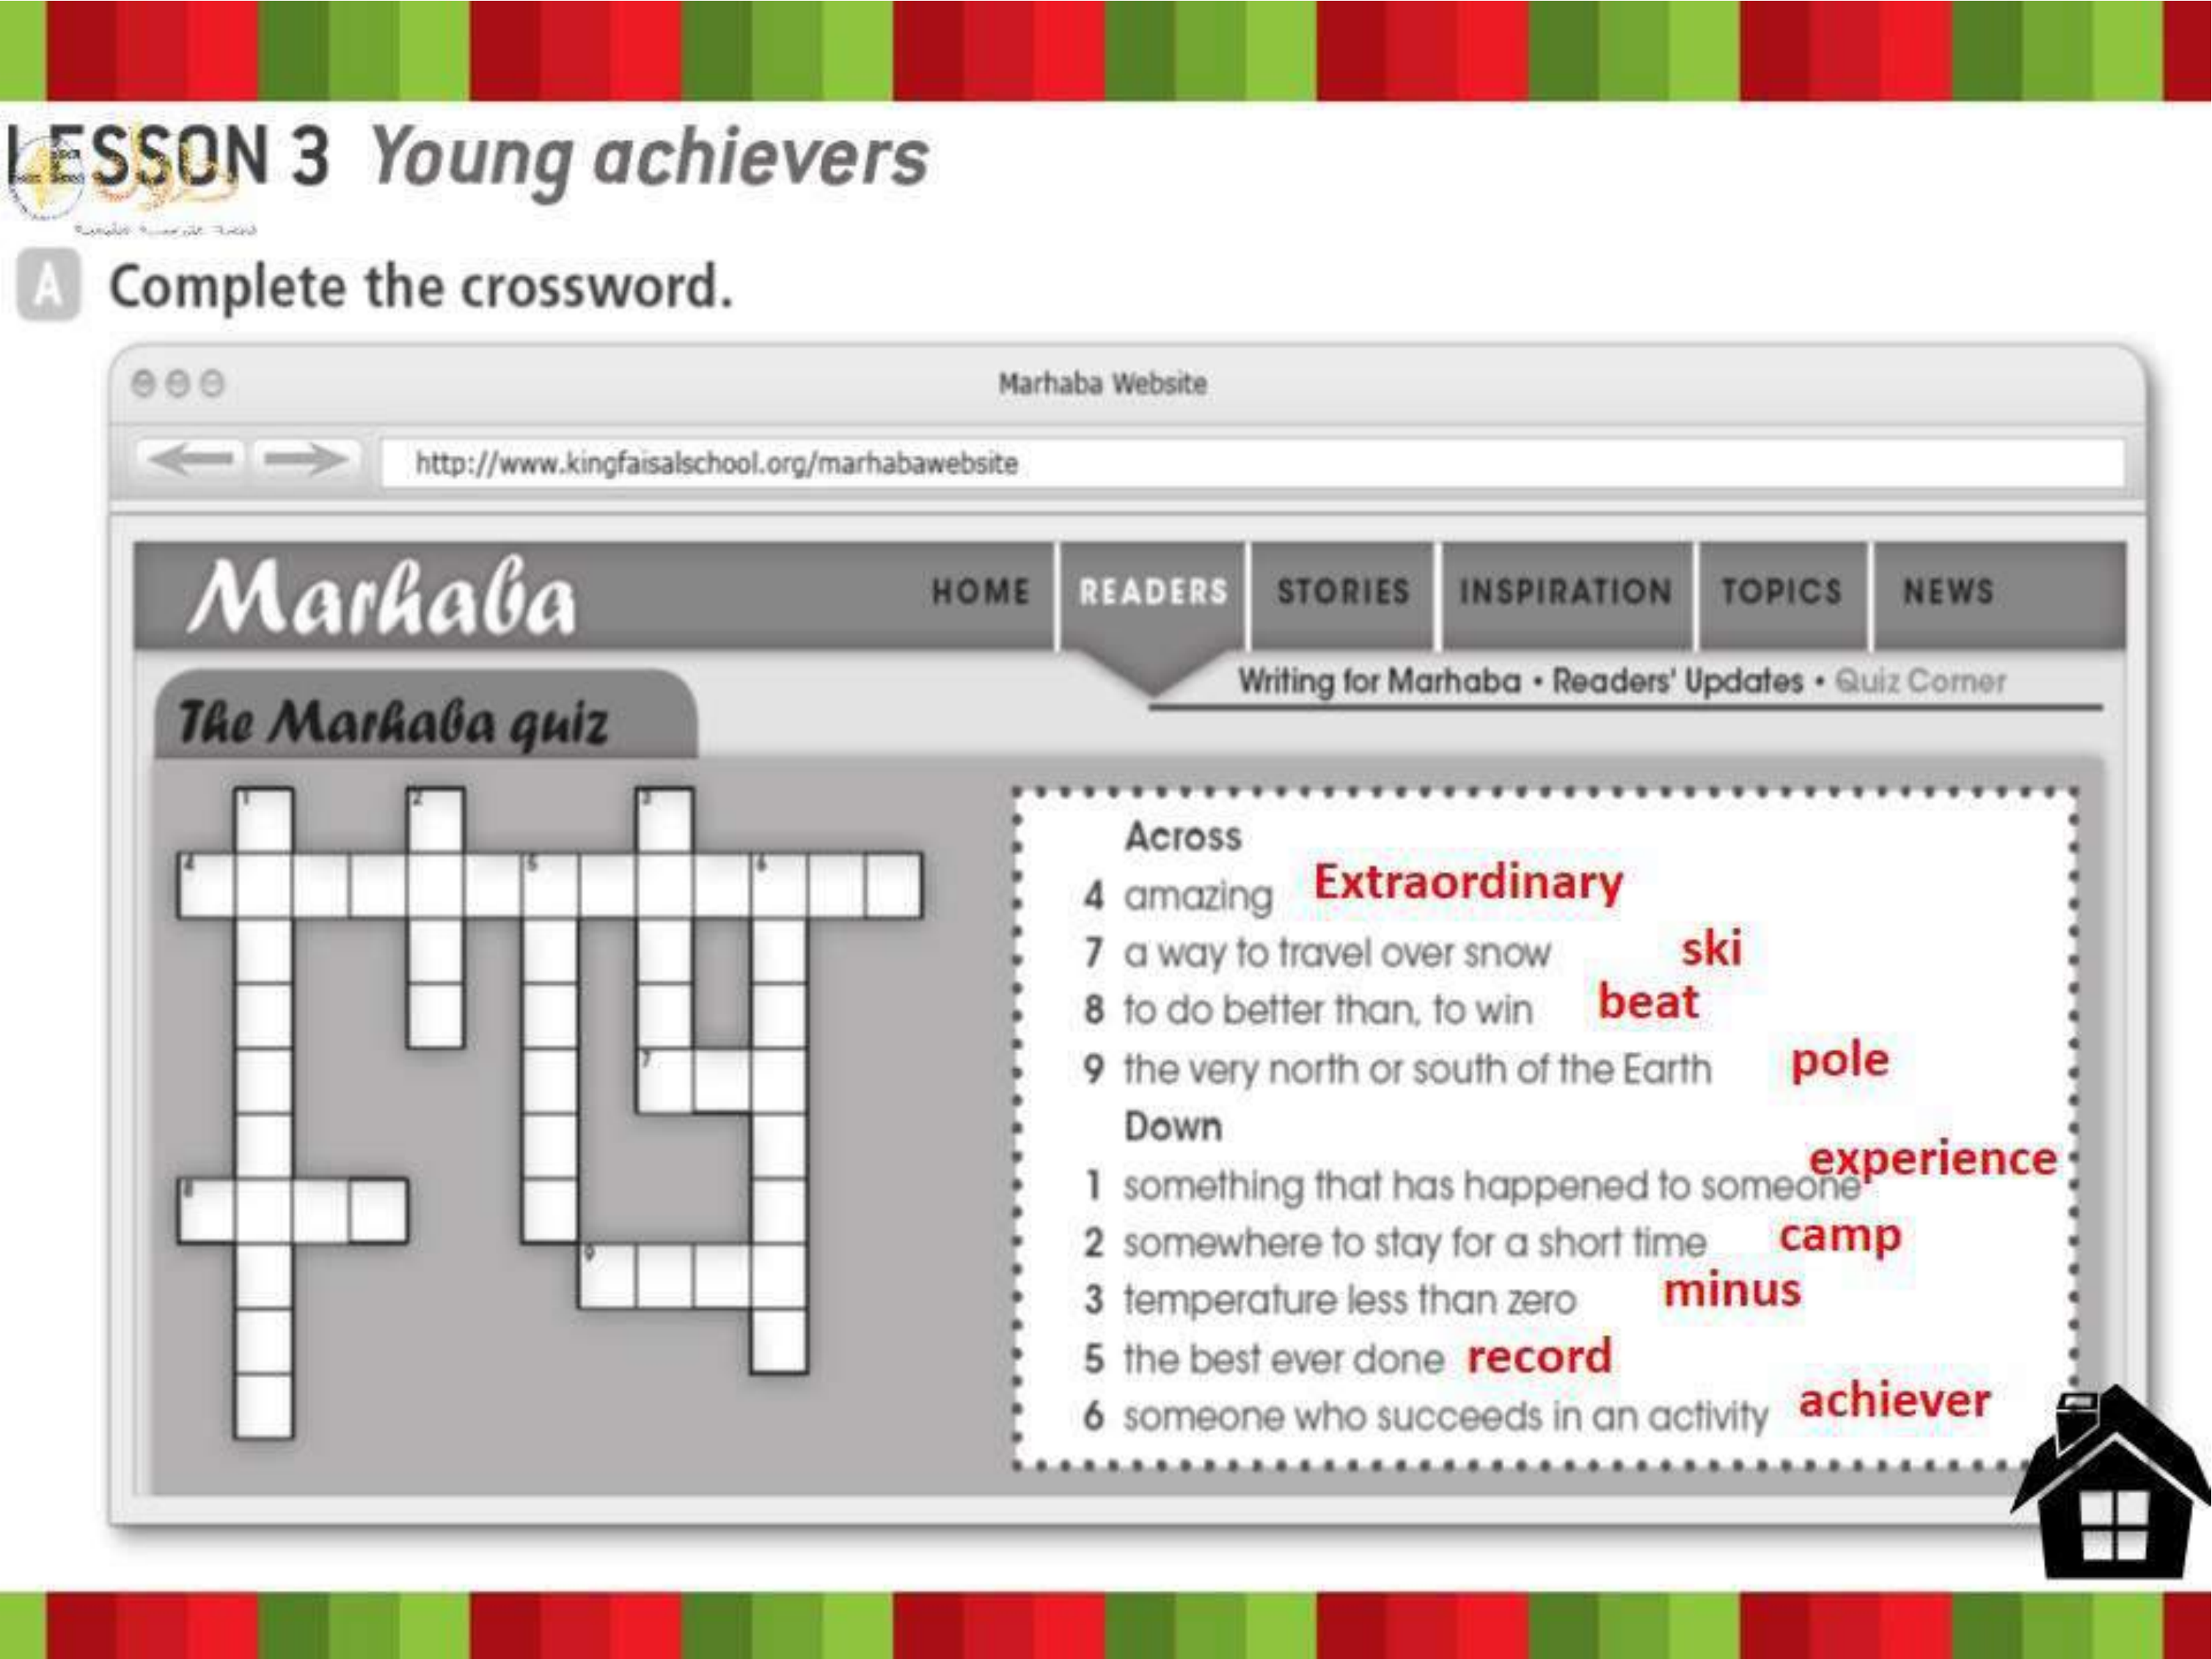 LESSON 3 Young achievers
A Complete the crossword.
Marhaba Website
http://www.kingfaisalschool.org/marhabawebsite
Marhaba HOME READERS STORIES INSPIRATION TOPICS NEWS
Writing for Marhaba • Readers' Updates • Quiz Corner
The Marhaba quiz
1 2 3
4 5 6
7
8
9
Across
4 amazing Extraordinary
7 a way to travel over snow ski
8 to do better than, to win beat
9 the very north or south of the Earth pole
Down
1 something that has happened to someone experience
2 somewhere to stay for a short time camp
3 temperature less than zero minus
5 the best ever done record
6 someone who succeeds in an activity achiever